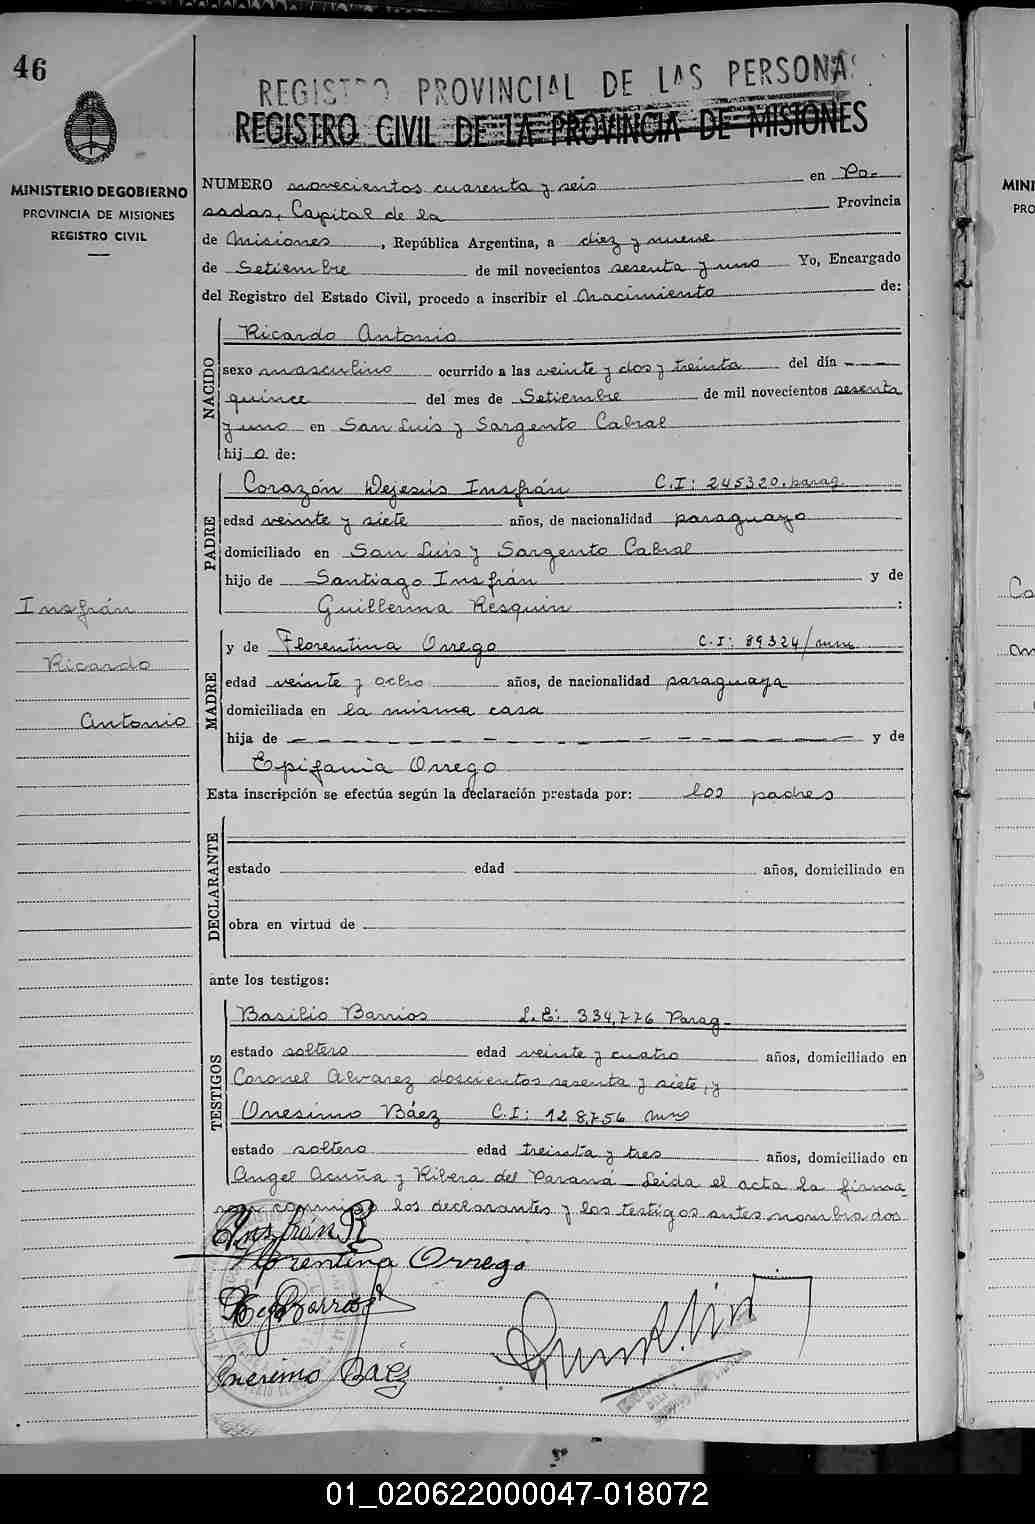 46
REGISTRO PROVINCIAL DE LAS PERSONAS
REGISTRO CIVIL DE LA PROVINCIA DE MISIONES
MINISTERIO DE GOBIERNO
PROVINCIA DE MISIONES
REGISTRO CIVIL
NUMERO novecientos cuarenta y seis en Po-
sadas, Capital de la Provincia
de Misiones, República Argentina, a diez y nueve
de Setiembre de mil novecientos sesenta y uno Yo, Encargado
del Registro del Estado Civil, procedo a inscribir el nacimiento de:
NACIDO
Ricardo Antonio
sexo masculino ocurrido a las veinte y dos y treinta del día
quince del mes de Setiembre de mil novecientos sesenta
y uno en San Luis y Sargento Cabral
hijo de:
PADRE
Corazón Dejesús Insfrán C.I: 245320. parag
edad veinte y siete años, de nacionalidad paraguayo
domiciliado en San Luis y Sargento Cabral
hijo de Santiago Insfrán y de
Guillerma Resquin :
MADRE
y de Florentina Orrego C.I: 89324/mnes
edad veinte y ocho años, de nacionalidad paraguaya
domiciliada en la misma casa
hija de - - - - - - - - - - y de
Epifania Orrego
Esta inscripción se efectúa según la declaración prestada por: los padres
DECLARANTE
estado edad años, domiciliado en
obra en virtud de
ante los testigos:
TESTIGOS
Basilio Barrios L.E: 334,776 Parag-
estado soltero edad veinte y cuatro años, domiciliado en
Coronel Alvarez doscientos sesenta y siete, y
Onesimo Báez C.I: 128,756 mns
estado soltero edad treinta y tres años, domiciliado en
Angel Acuña y Ribera del Paraná - Leida el acta la firma-
ron conmigo los declarantes y los testigos antes nombrados
Insfrán R
Florentina Orrego
Barrios
Onesimo Baez
Insfrán
Ricardo
Antonio
MINI
PRO
01_020622000047-018072